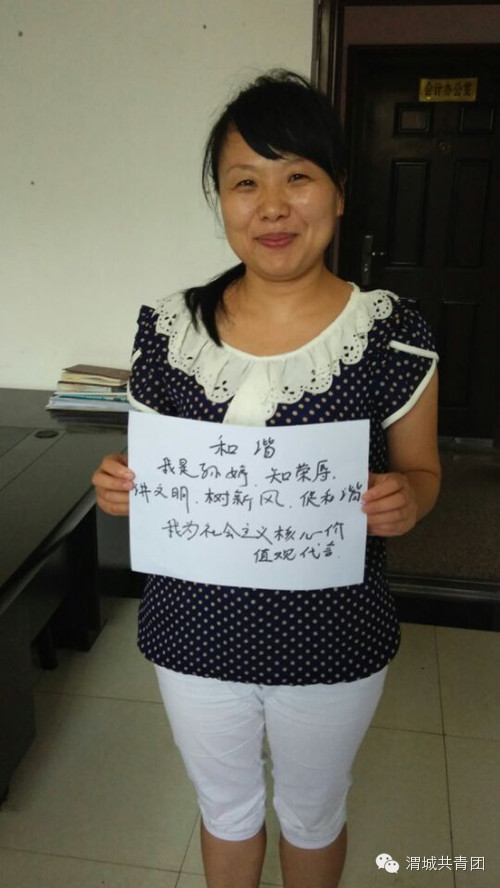 会计办公室
和谐
我是孙婷、知荣辱、
讲文明、树新风、促和谐
我为社会主义核心价
值观代言.
渭城共青团